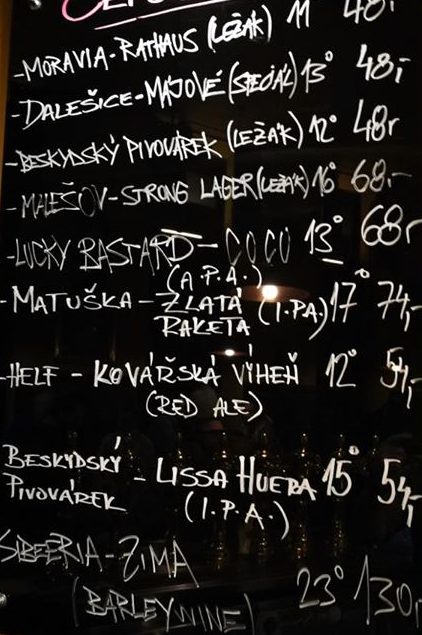 -MORAVIA-RATHAUS (LEŽÁK) 11 48,-
-DALEŠICE-MÁJOVÉ (SPECIÁL) 13° 48,-
-BESKYDSKÝ PIVOVÁREK (LEŽÁK) 12° 48,-
-MALEŠOV-STRONG LAGER (LEŽÁK) 16° 68,-
-LUCKY BASTARD-COCO 13° 68,-
(A.P.A.)
-MATUŠKA-ZLATÁ RAKETA (I.PA) 17° 74,-
-HELF-KOVÁŘSKÁ VÍHEŇ 12° 54,-
(RED ALE)
BESKYDSKÝ PIVOVÁREK - LISSA HUERA 15° 54,-
(I.P.A.)
SIBEERIA-ZIMA
(BARLEYWINE) 23° 130,-